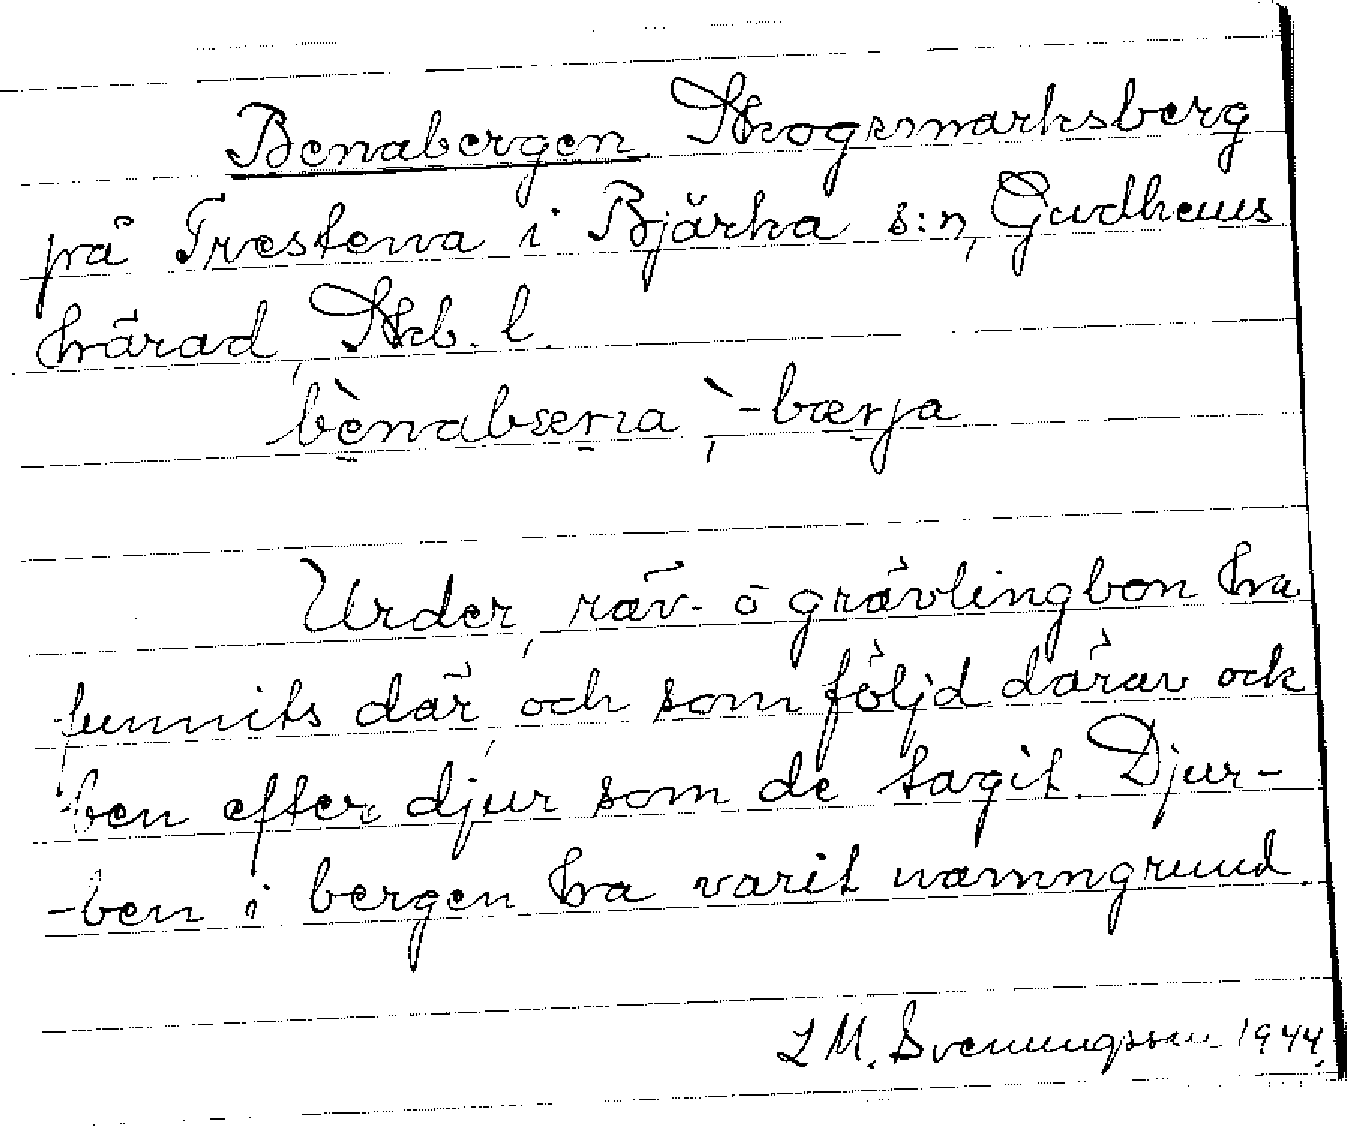 Benabergen Skogsmarksberg
på Trestena i Bjärka s:n, Gudhems
härad, Skb. l.
bènabærıa, `-bærja
Urder, räv- o grävlingbon ha
funnits där, och som följd därav ock
ben efter djur som de tagit. Djur-
-ben i bergen ha varit namngrund.
L M. Svenungsson 1944.